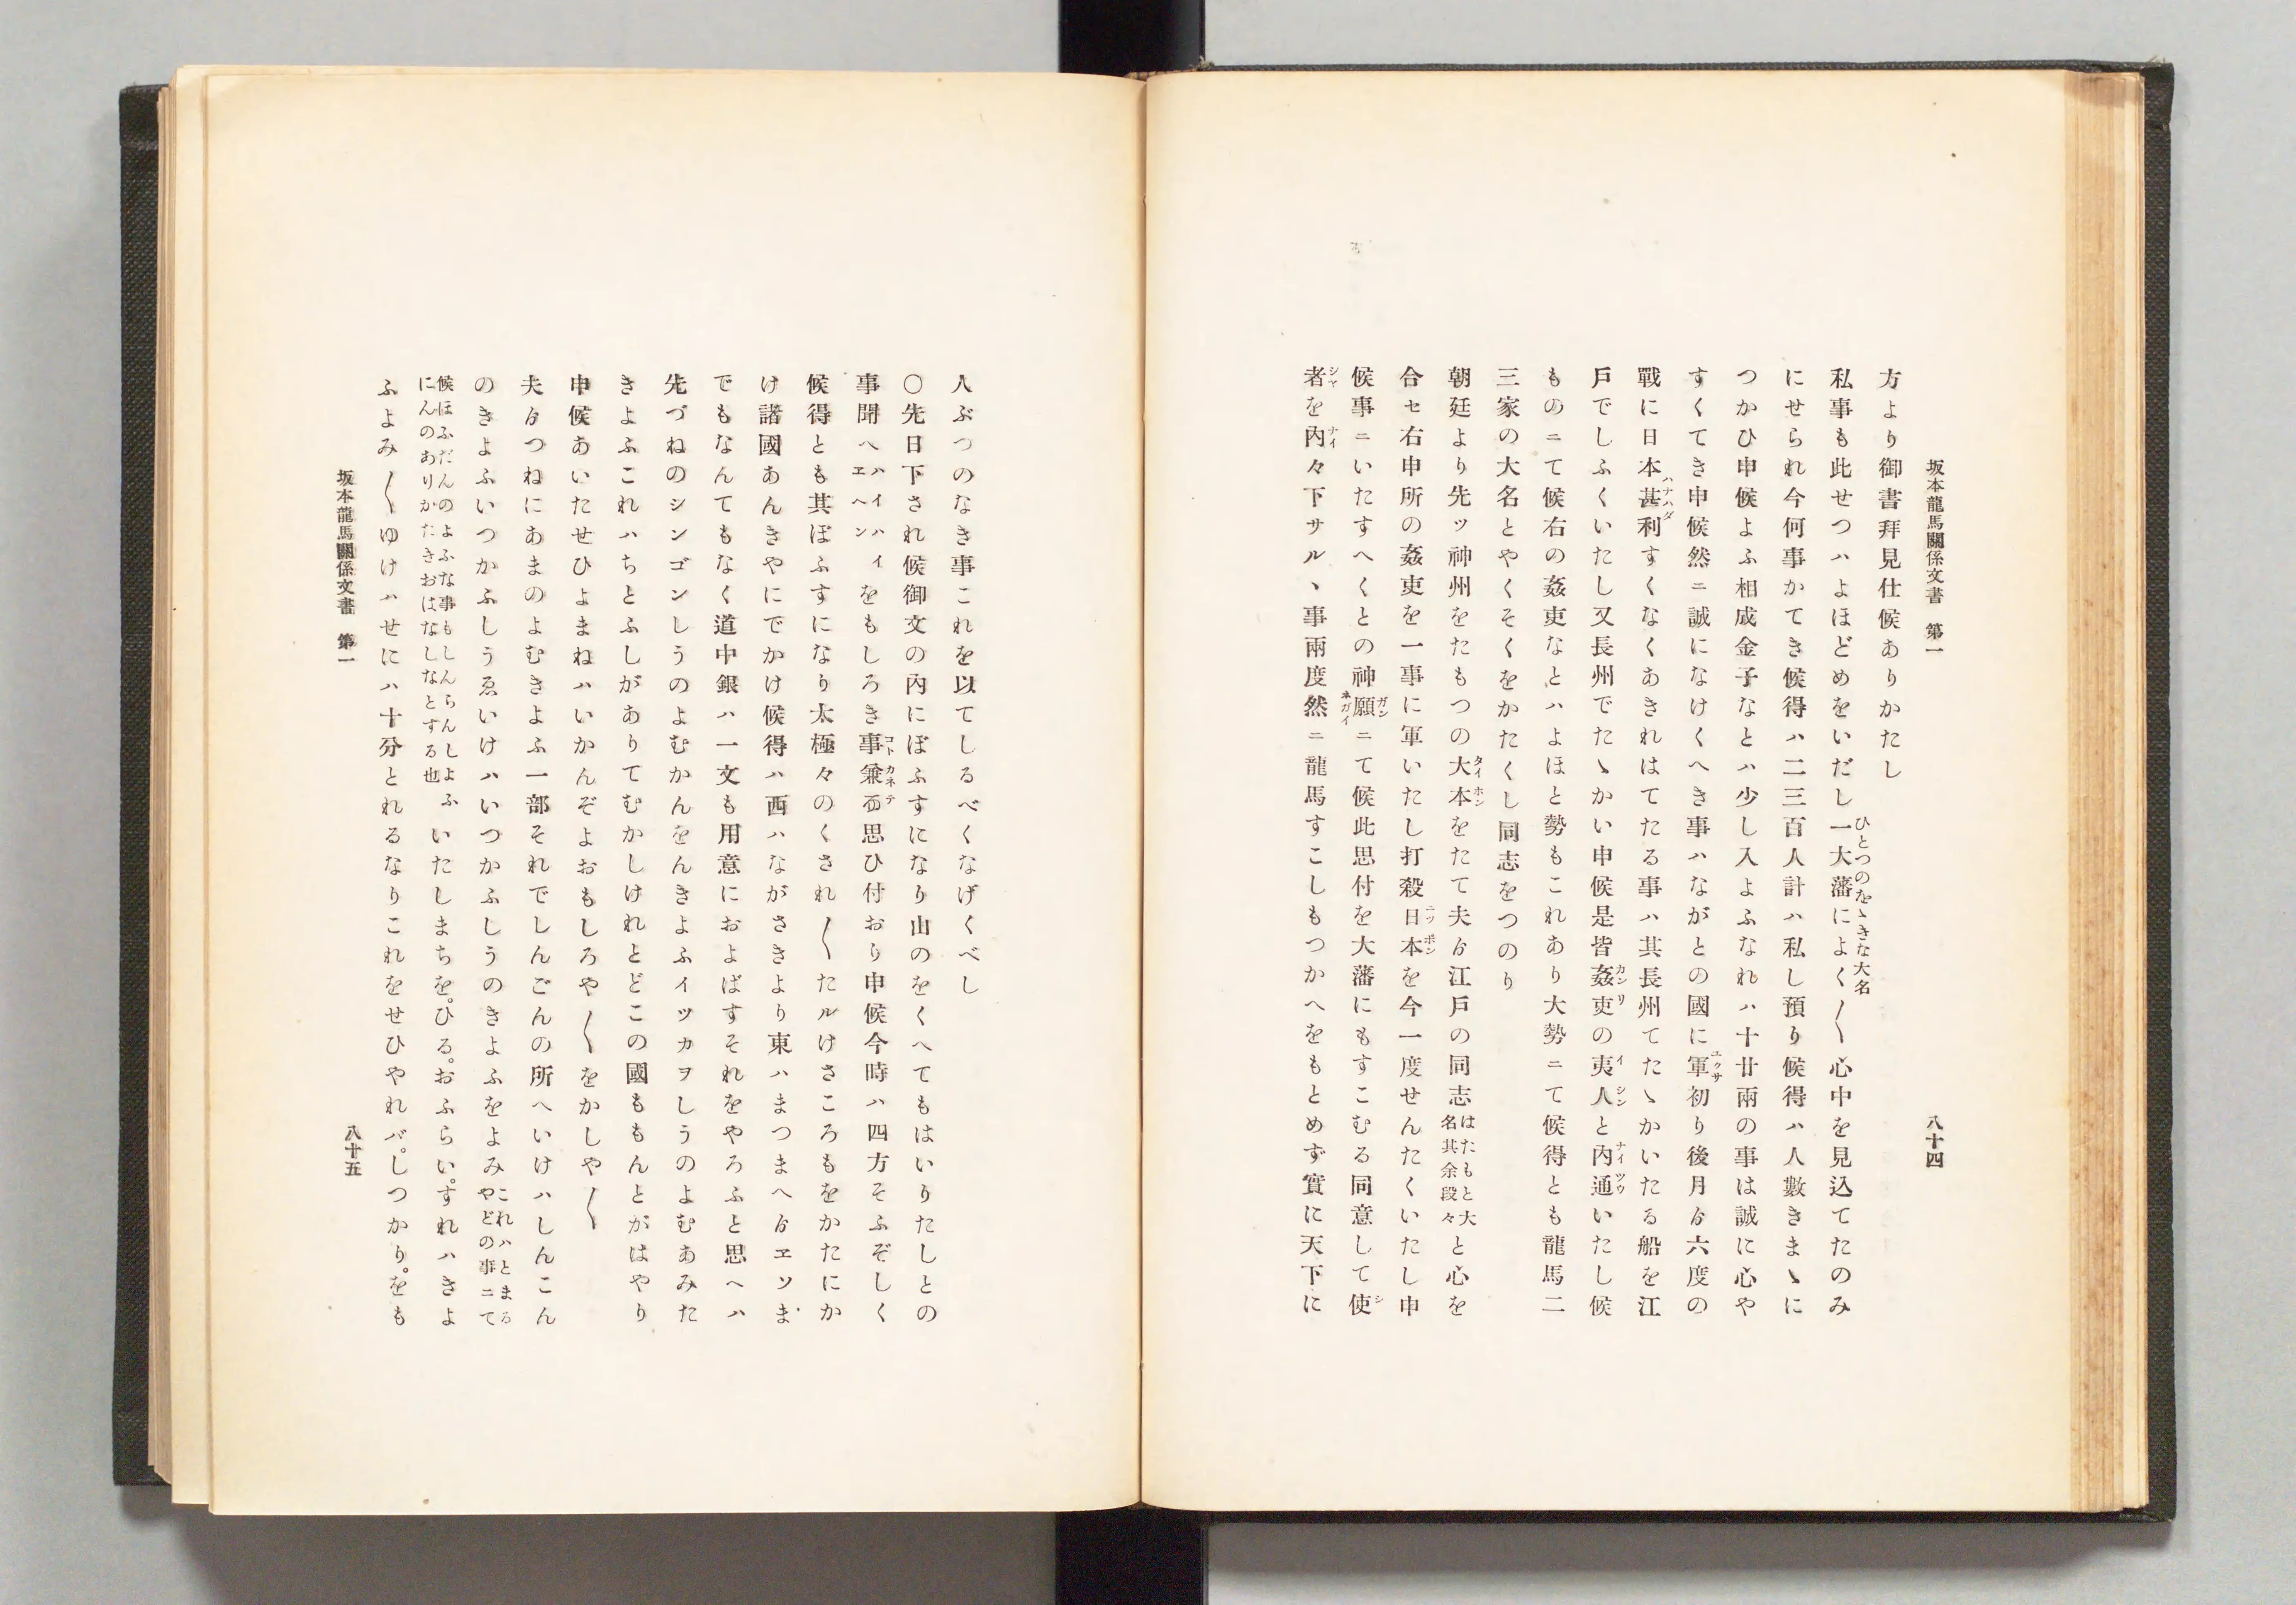 坂本龍馬關係文書　第一
八十四
方より御書拜見仕候ありかたし
私事も此せつハよほどめをいだし一大藩によく〱心中を見込てたのみ
ひとつのをゝきな大名
にせられ今何事かてき候得ハ二三百人計ハ私し預り候得ハ人數きまゝに
つかひ申候よふ相成金子なとハ少し入よふなれハ十廿兩の事は誠に心や
すくてき申候然ニ誠になけくへき事ハながとの國に軍初り後月ゟ六度の
エクサ
戰に日本甚利すくなくあきれはてたる事ハ其長州てたゝかいたる船を江
ハナハダ
戶でしふくいたし又長州でたゝかい申候是皆姦吏の夷人と內通いたし候
カンリ　イシン　ナイツウ
ものニて候右の姦吏なとハよほと勢もこれあり大勢ニて候得とも龍馬二
三家の大名とやくそくをかたくし同志をつのり
朝廷より先ッ神州をたもつの大本をたて夫ゟ江戶の同志はたもと大名其余段々と心を
タイホン
合セ右申所の姦吏を一事に軍いたし打殺日本を今一度せんたくいたし申
ニツポン
候事ニいたすへくとの神願ニて候此思付を大藩にもすこむる同意して使
ガン　ネガイ　シ
者を內々下サルヽ事兩度然ニ龍馬すこしもつかへをもとめず實に天下に
シヤ　ナイ
人ぶつのなき事これを以てしるべくなげくべし
〇先日下され候御文の內にぼふすになり山のをくへてもはいりたしとの
事聞へハイハイエヘンをもしろき事兼而思ひ付おり申候今時ハ四方そふぞしく
コト　カネテ
候得とも其ぼふすになり太極々のくされ〱たルけさころもをかたにか
け諸國あんきやにでかけ候得ハ西ハながさきより東ハまつまへゟエソま
でもなんてもなく道中銀ハ一文も用意におよばすそれをやろふと思へハ
先づねのシンゴンしうのよむかんをんきよふイツカヲしうのよむあみた
きよふこれハちとふしがありてむかしけれとどこの國ももんとがはやり
申候あいたせひよまねハいかんぞよおもしろや〱をかしや〱
夫ゟつねにあまのよむきよふ一部それでしんごんの所へいけハしんこん
のきよふいつかふしうゑいけハいつかふしうのきよふをよみこれハとまるやどの事ニて
候ほふだんのよふな事もしんらんしよふにんのありかたきおはなしなとする也いたしまちを。ひる。おふらい。すれハきよ
ふよみ〱ゆけハせにハ十分とれるなりこれをせひやれバ。しつかり。をも
坂本龍馬關係文書　第一
八十五